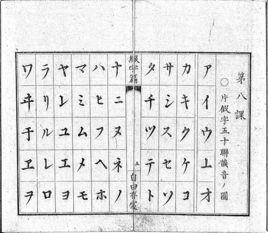 第八課
○片假字五十聯音ノ圖
アイウエオ
カキクケコ
サシスセソ
タチツテト
綴字篇
五
ナニヌネノ
ハヒフヘホ
マミムメモ
ヤイユエヨ
ラリルレロ
ワヰ于ヱヲ